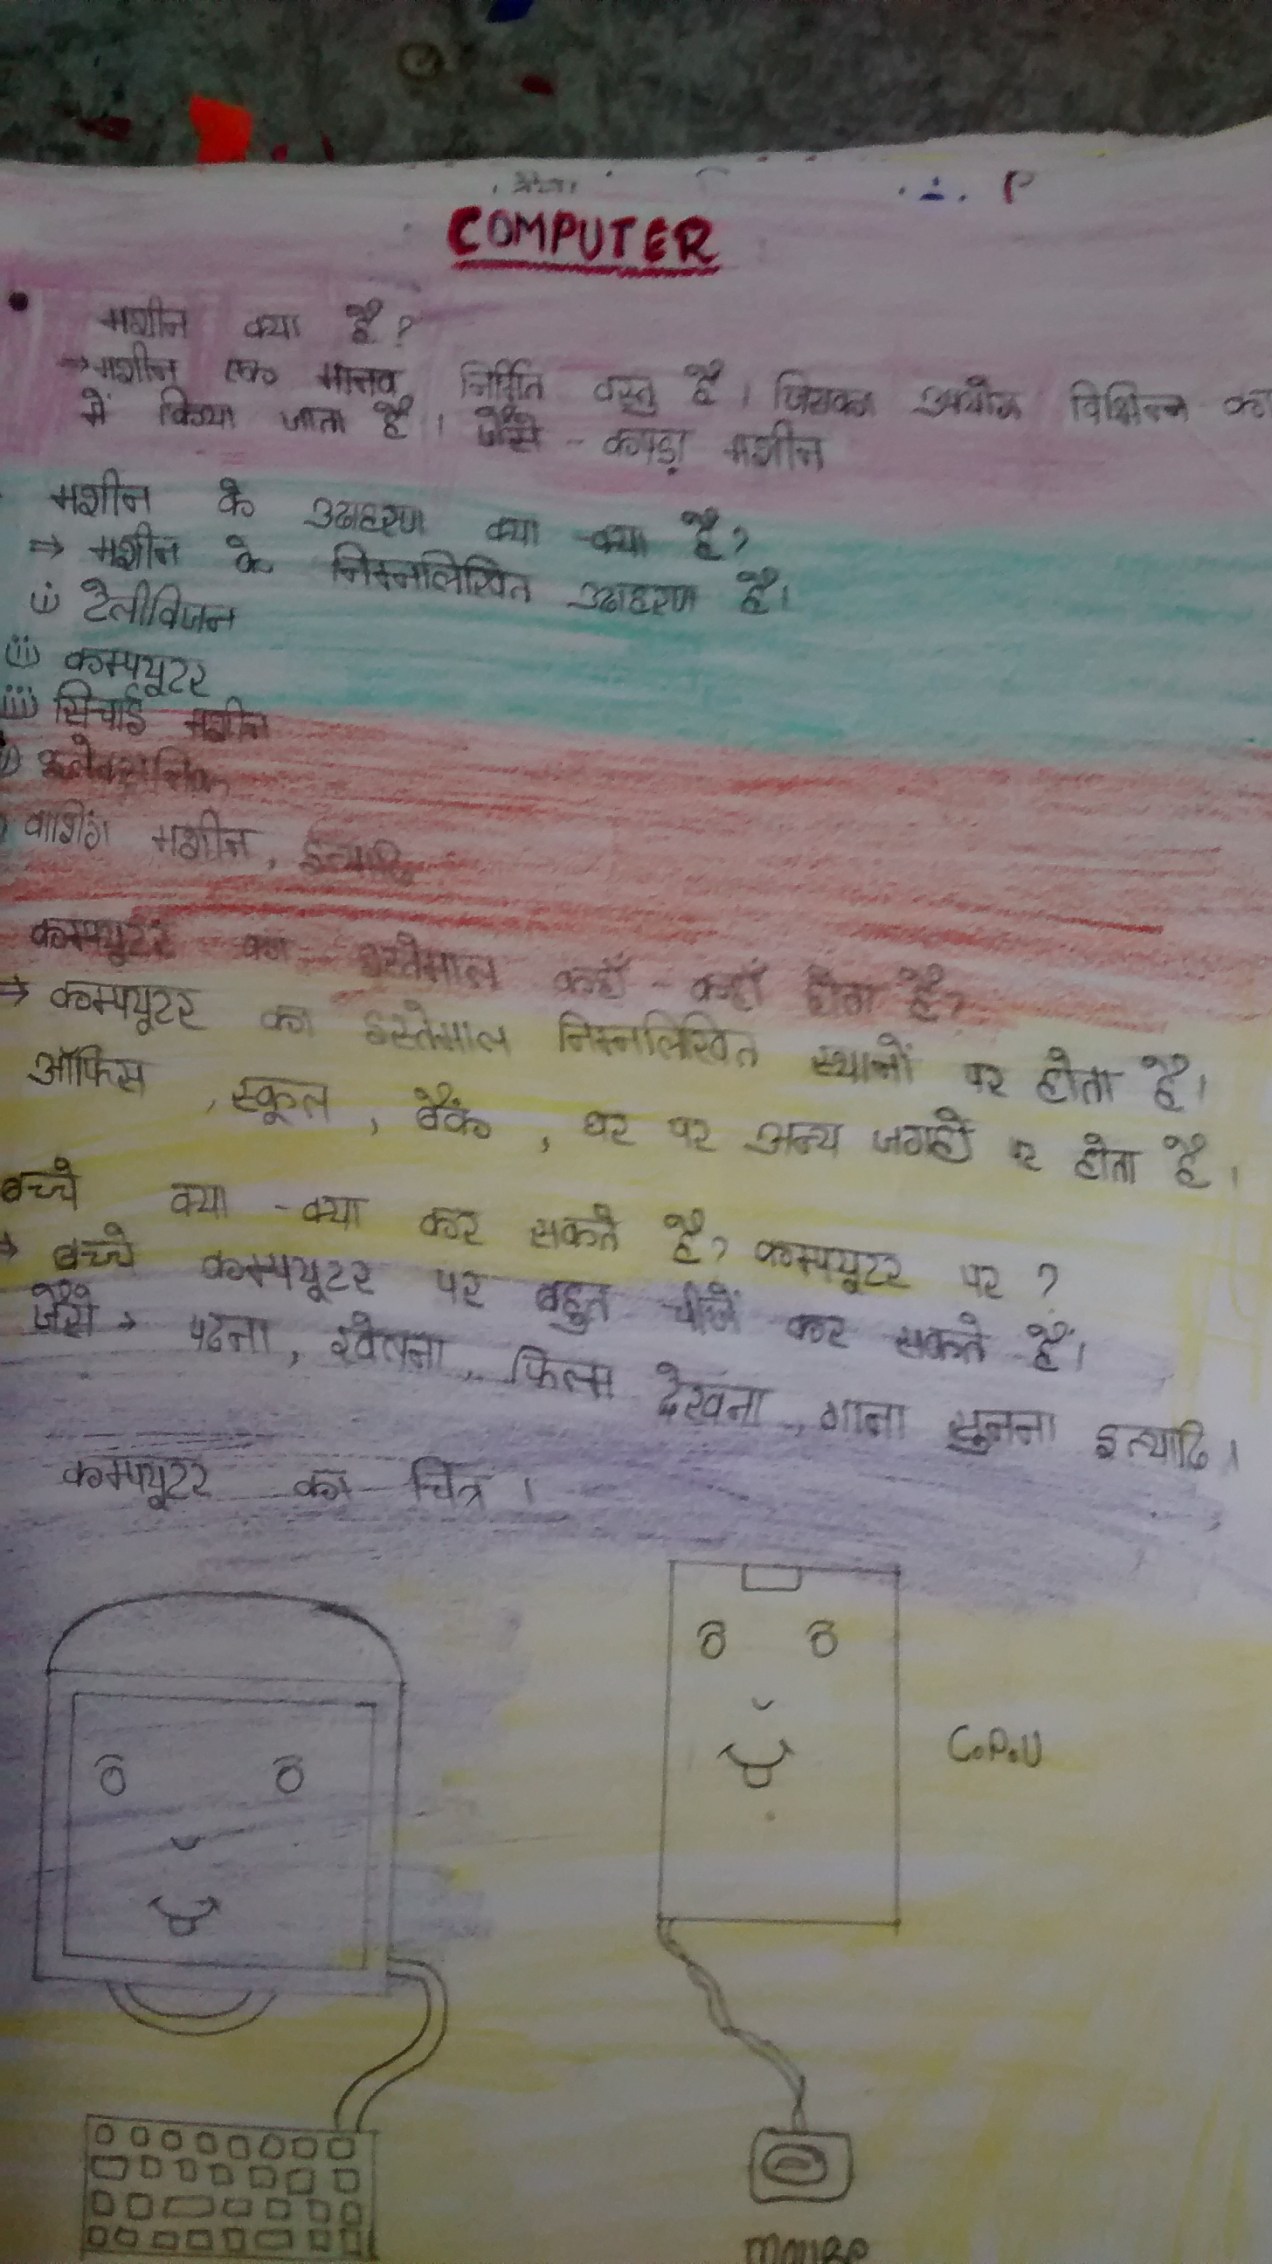 COMPUTER
मशीन क्या है?
⇒ मशीन एक मानव निर्मित वस्तु है। जिसका विभिन्न
में किया जाता है। जैसे - कपड़ा मशीन
मशीन के उदाहरण क्या क्या है?
⇒ मशीन के निम्नलिखित उदाहरण है।
i) टेलीविजन
(ii) कम्पयूटर
(iii) सिचाई मशीन
वाशिंग मशीन, इत्यादि
कम्पयूटर का इस्तेमाल कहाँ - कहाँ होता है?
⇒ कम्पयूटर का इस्तेमाल निम्नलिखित स्थानों पर होता है।
ऑफिस , स्कूल , बैंक , घर पर अन्य जगहों पर होता है।
बच्चे क्या - क्या कर सकते है? कम्पयूटर पर ?
⇒ बच्चे कम्पयूटर पर बहुत चीजें कर सकते हैं।
जैसे → पढना, खेलना, फिल्म देखना, गाना सुनना इत्यादि।
कम्पयूटर का चित्र।
C.P.U